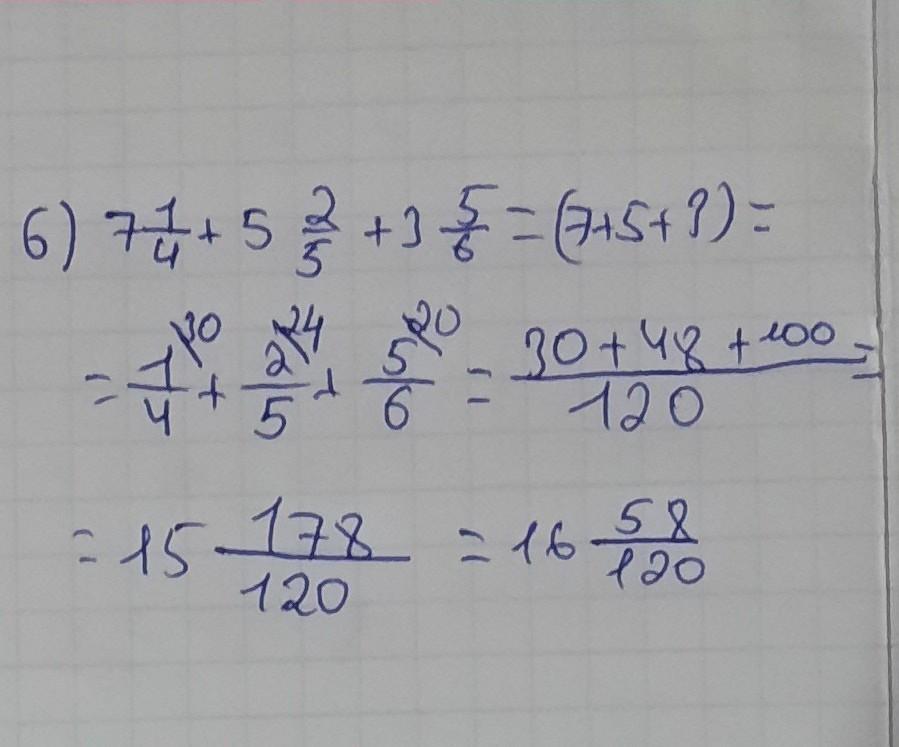 6) 7 1/4 + 5 2/5 + 3 5/6 = (7+5+3) =
= 1/4 \30 + 2/5 \24 + 5/6 \20 = (30+48+100)/120 =
= 15 178/120 = 16 58/120